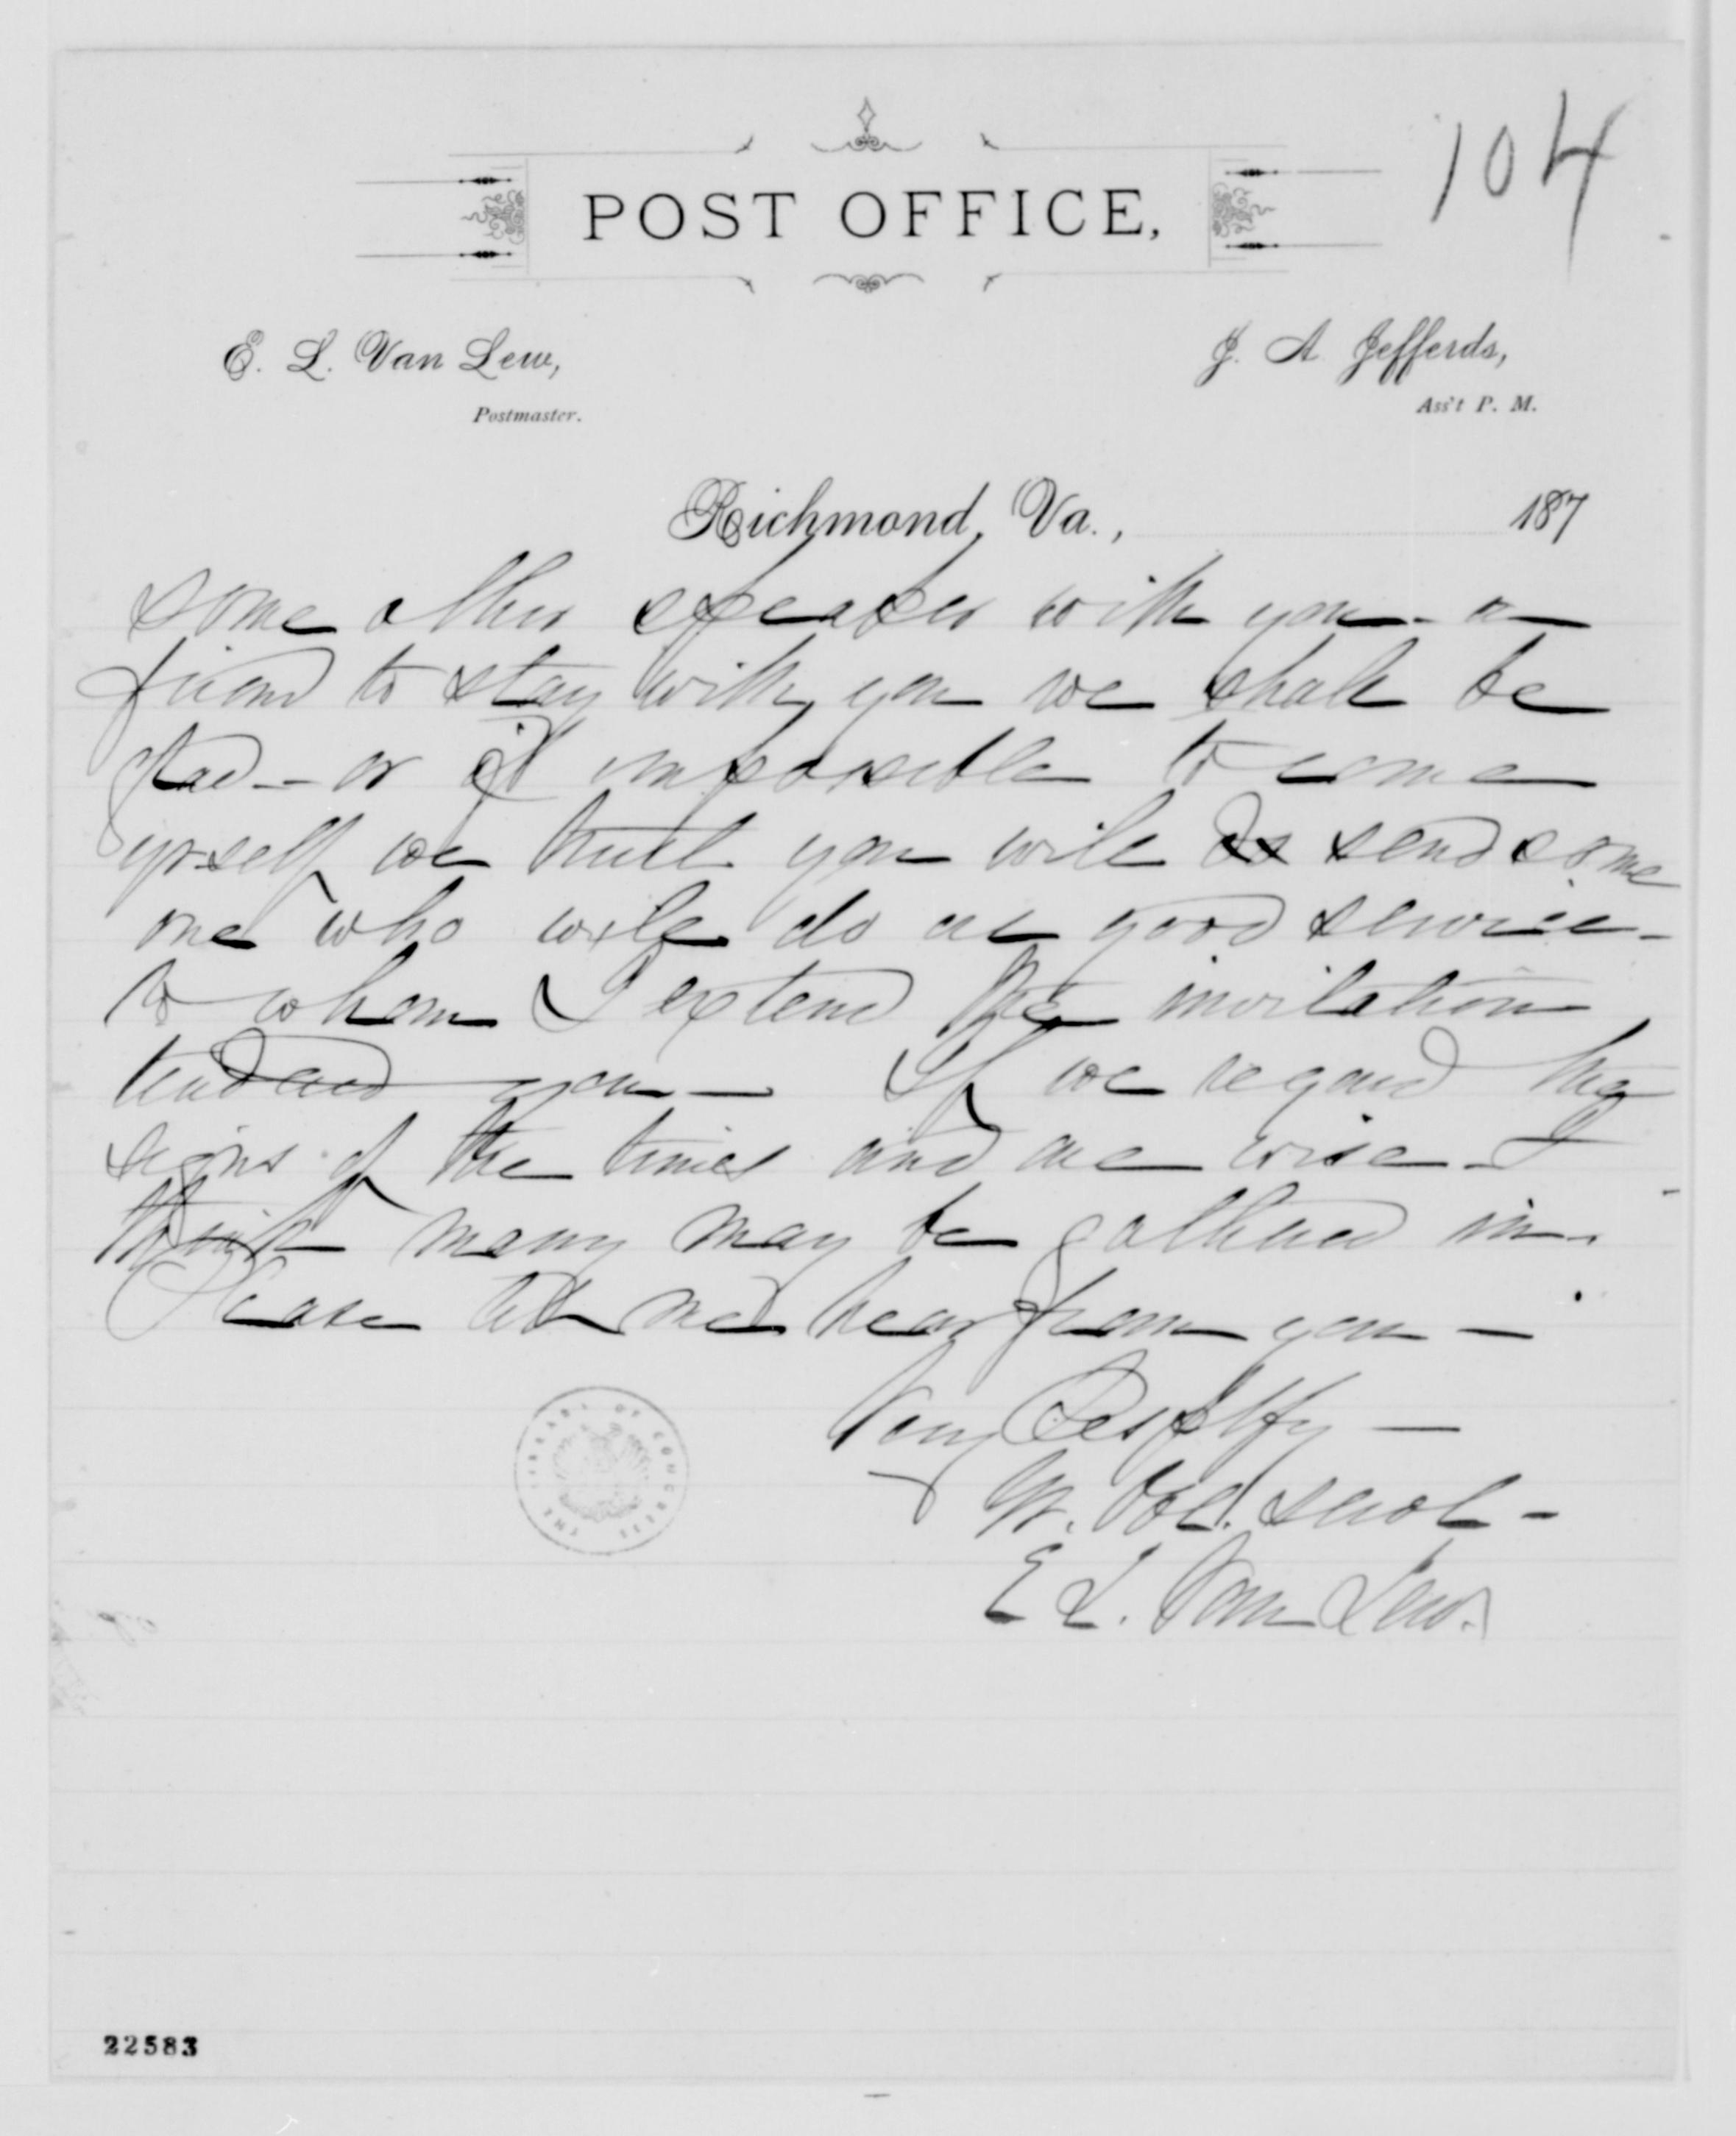 104
POST OFFICE,
E. L. Van Lew,
Postmaster.
J. A. Jefferds,
Ass't P. M.
Richmond, Va., 187
some other speaker with you - a
friend to stay with you we shall be
glad - or if impossible to come
yrself we trust you will do send some
one who will do as good service -
to whom I extend the invitation
tendered you - If we regard the
signs of the times and are wise - I
think many may be gathered in.
Please let me hear from you -
Very Respctfly -
Yr. obd. servt -
E L. Van Lew.
THE LIBRARY OF CONGRESS
22583